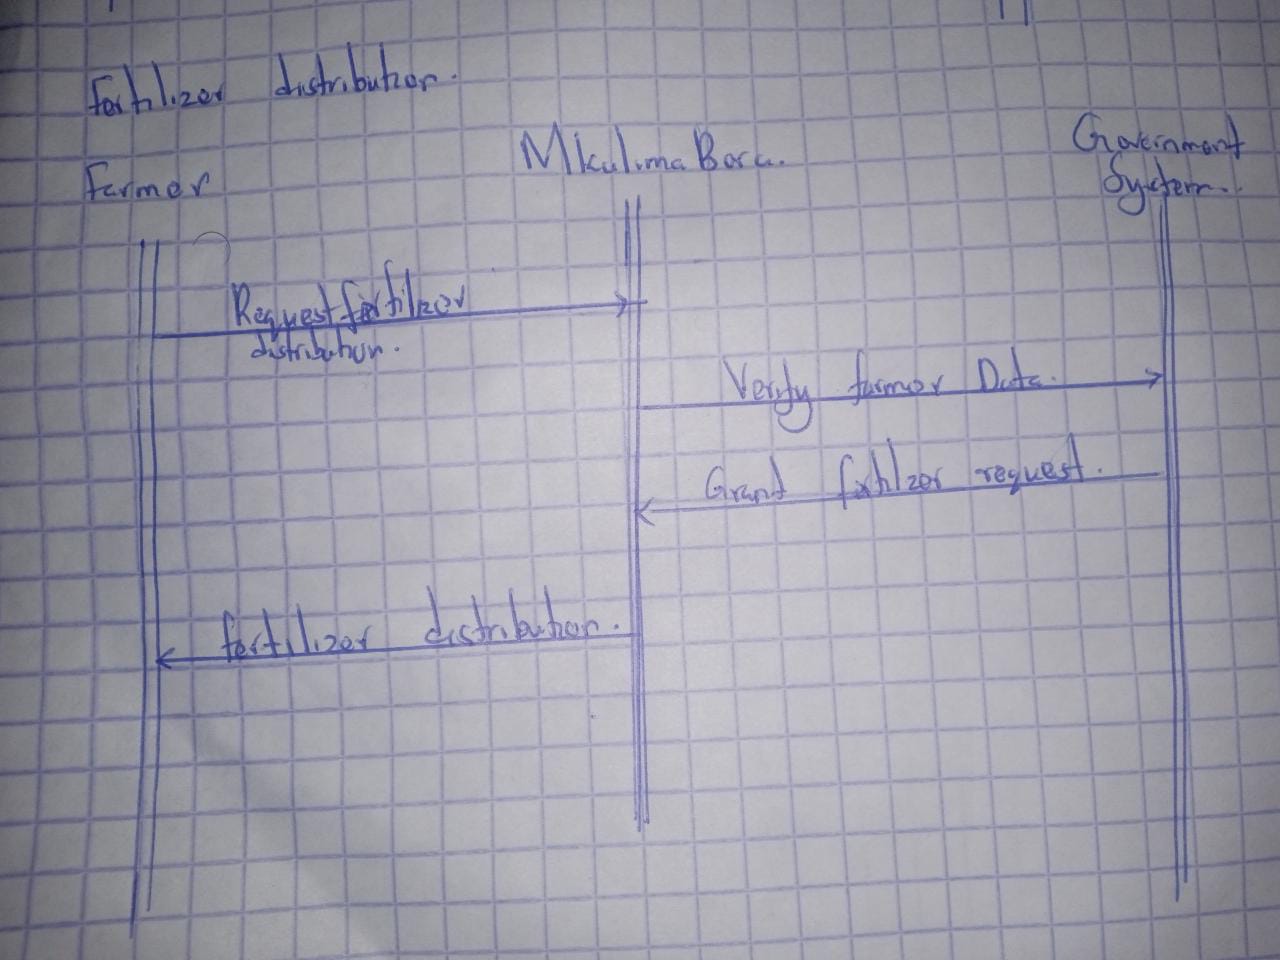 Fertilizer distribution.
Farmer
MkulimaBora.
Government
System.
Request fertilizer
distribution.
Verify farmer Data.
Grant fertilizer request.
fertilizer distribution.